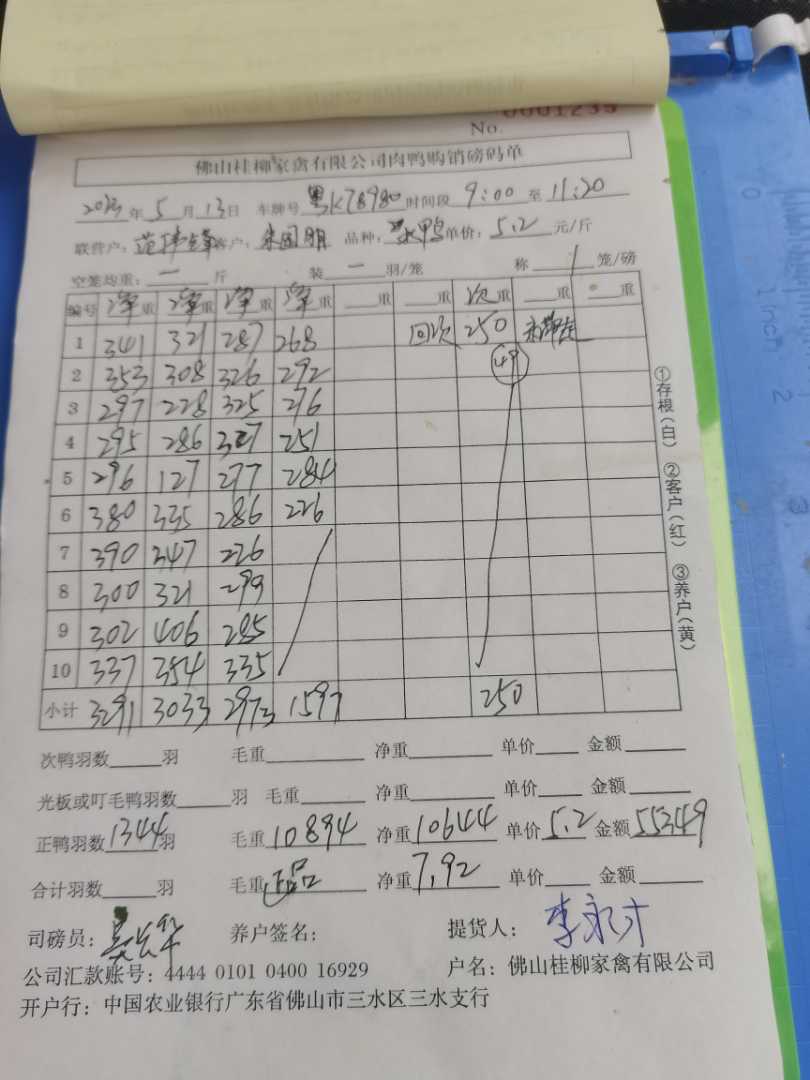 No. 0001235
佛山桂柳家禽有限公司肉鸭购销磅码单
2023年5月13日 车牌号 粤K78980 时间段 9:00 至 11:20
联营户: 范伟锋 客户: 朱国明 品种: 鸭 单价: 5.2 元/斤
空笼均重: 一 斤 装 一 羽/笼 称 1 笼/磅
编号 净重 净重 净重 净重 重 重 次重 重 重
1 341 321 287 268 回次 250
2 353 308 326 292 49
3 297 228 325 276
4 295 286 327 251
5 296 127 277 284
6 380 335 286 226
7 390 347 226
8 300 321 299
9 302 406 285
10 337 354 335
小计 3291 3033 2973 1597 250
①存根(白) ②客户(红) ③养户(黄)
次鸭羽数 羽 毛重 净重 单价 金额
光板或叮毛鸭羽数 羽 毛重 净重 单价 金额
正鸭羽数 1344 羽 毛重 10894 净重 10644 单价 5.2 金额 55349
合计羽数 羽 毛重 正品 净重 7.92 单价 金额
司磅员: 养户签名: 提货人: 李永才
公司汇款账号: 4444 0101 0400 16929 户名: 佛山桂柳家禽有限公司
开户行: 中国农业银行广东省佛山市三水区三水支行